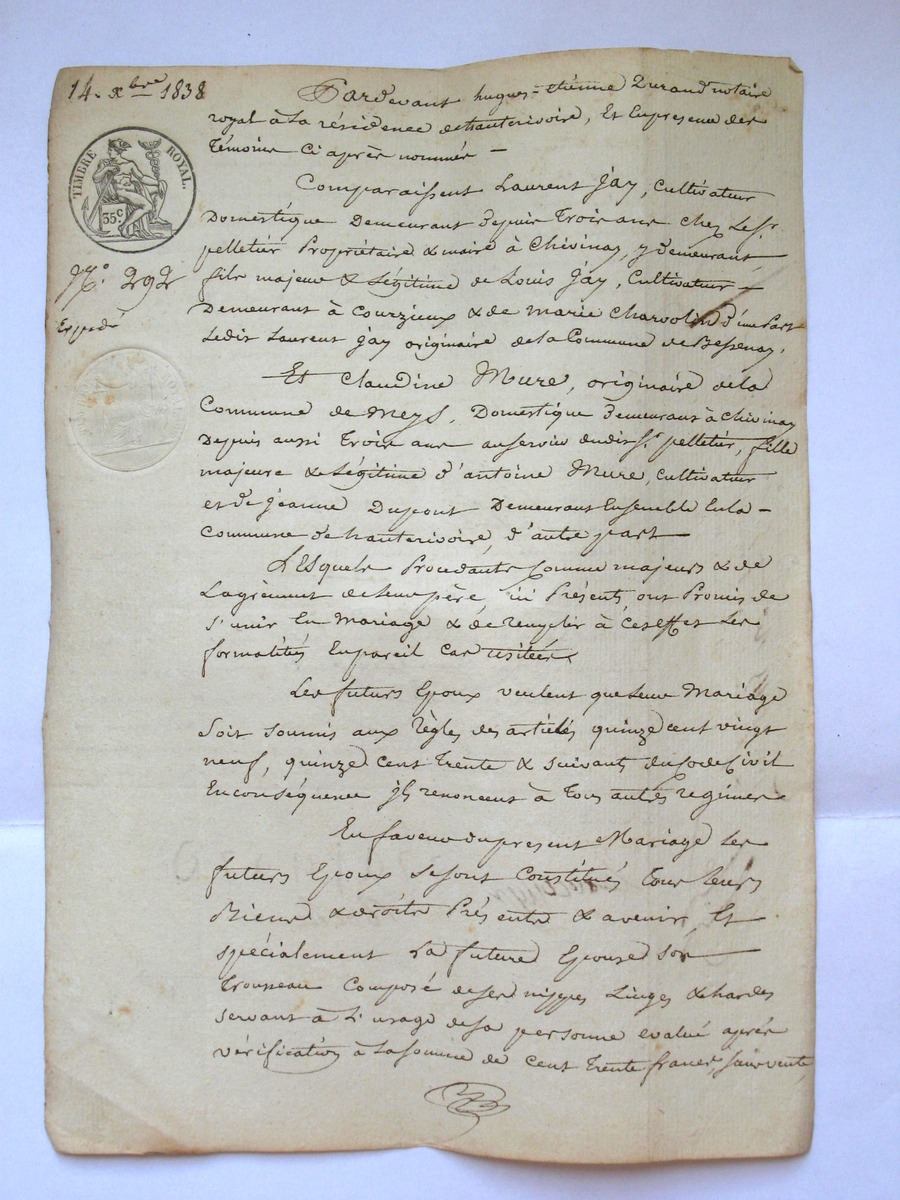 14. xbre 1838
TIMBRE ROYAL.
35c
No. 292
Expédié
Pardevant hugues=étienne Durand notaire
royal à la résidence de hauterivoire, Et En presence des
Témoins Ci après nommés —
Comparaissent Laurent Jay, Cultivateur
Domestique Demeurant depuis Trois ans chez Le Sr.
pelletier Propriétaire & maire à Chivinay, y demeurant,
fils majeur & Légitime de Louis Jay, Cultivateur —
Demeurant à Courzieux & de marie Charvolin d'une Part
Ledit Laurent Jay originaire de la Commune de Bessenay.
Et Claudine Mure, originaire de la
Commune de Meys, Domestique demeurant à Chivinay
Depuis aussi Trois ans au service dudit Sr. pelletier, fille
majeure & Légitime d'antoine Mure, Cultivateur
et de jeanne Dupont Demeurant Ensemble En la —
Commune de hauterivoire, d'autre part
LEsquels Procedants Comme majeurs & de
L'agrèment de leur père ici Présents, ont Promis de
s'unir En Mariage & de remplir à Cet Effet Les
formalités En pareil Cas usitées.
Les futurs Epoux veulent que leur Mariage
Soit soumis aux Règles des articles quinze cent vingt
neuf, quinze Cent Trente & Suivants du Code Civil
En conséquence ils renoncent à Tous autres régimes
En faveur du present Mariage Les
futurs Epoux Se sont Constitués Tous leurs
Biens & droits Présents & avenir, Et
spécialement La future Epouse son
Trousseau Composé de ses nippes Linges & hardes
servant à L'usage de sa personne evalué après
vérification à La Somme de Cent Trente francs, sans vente,